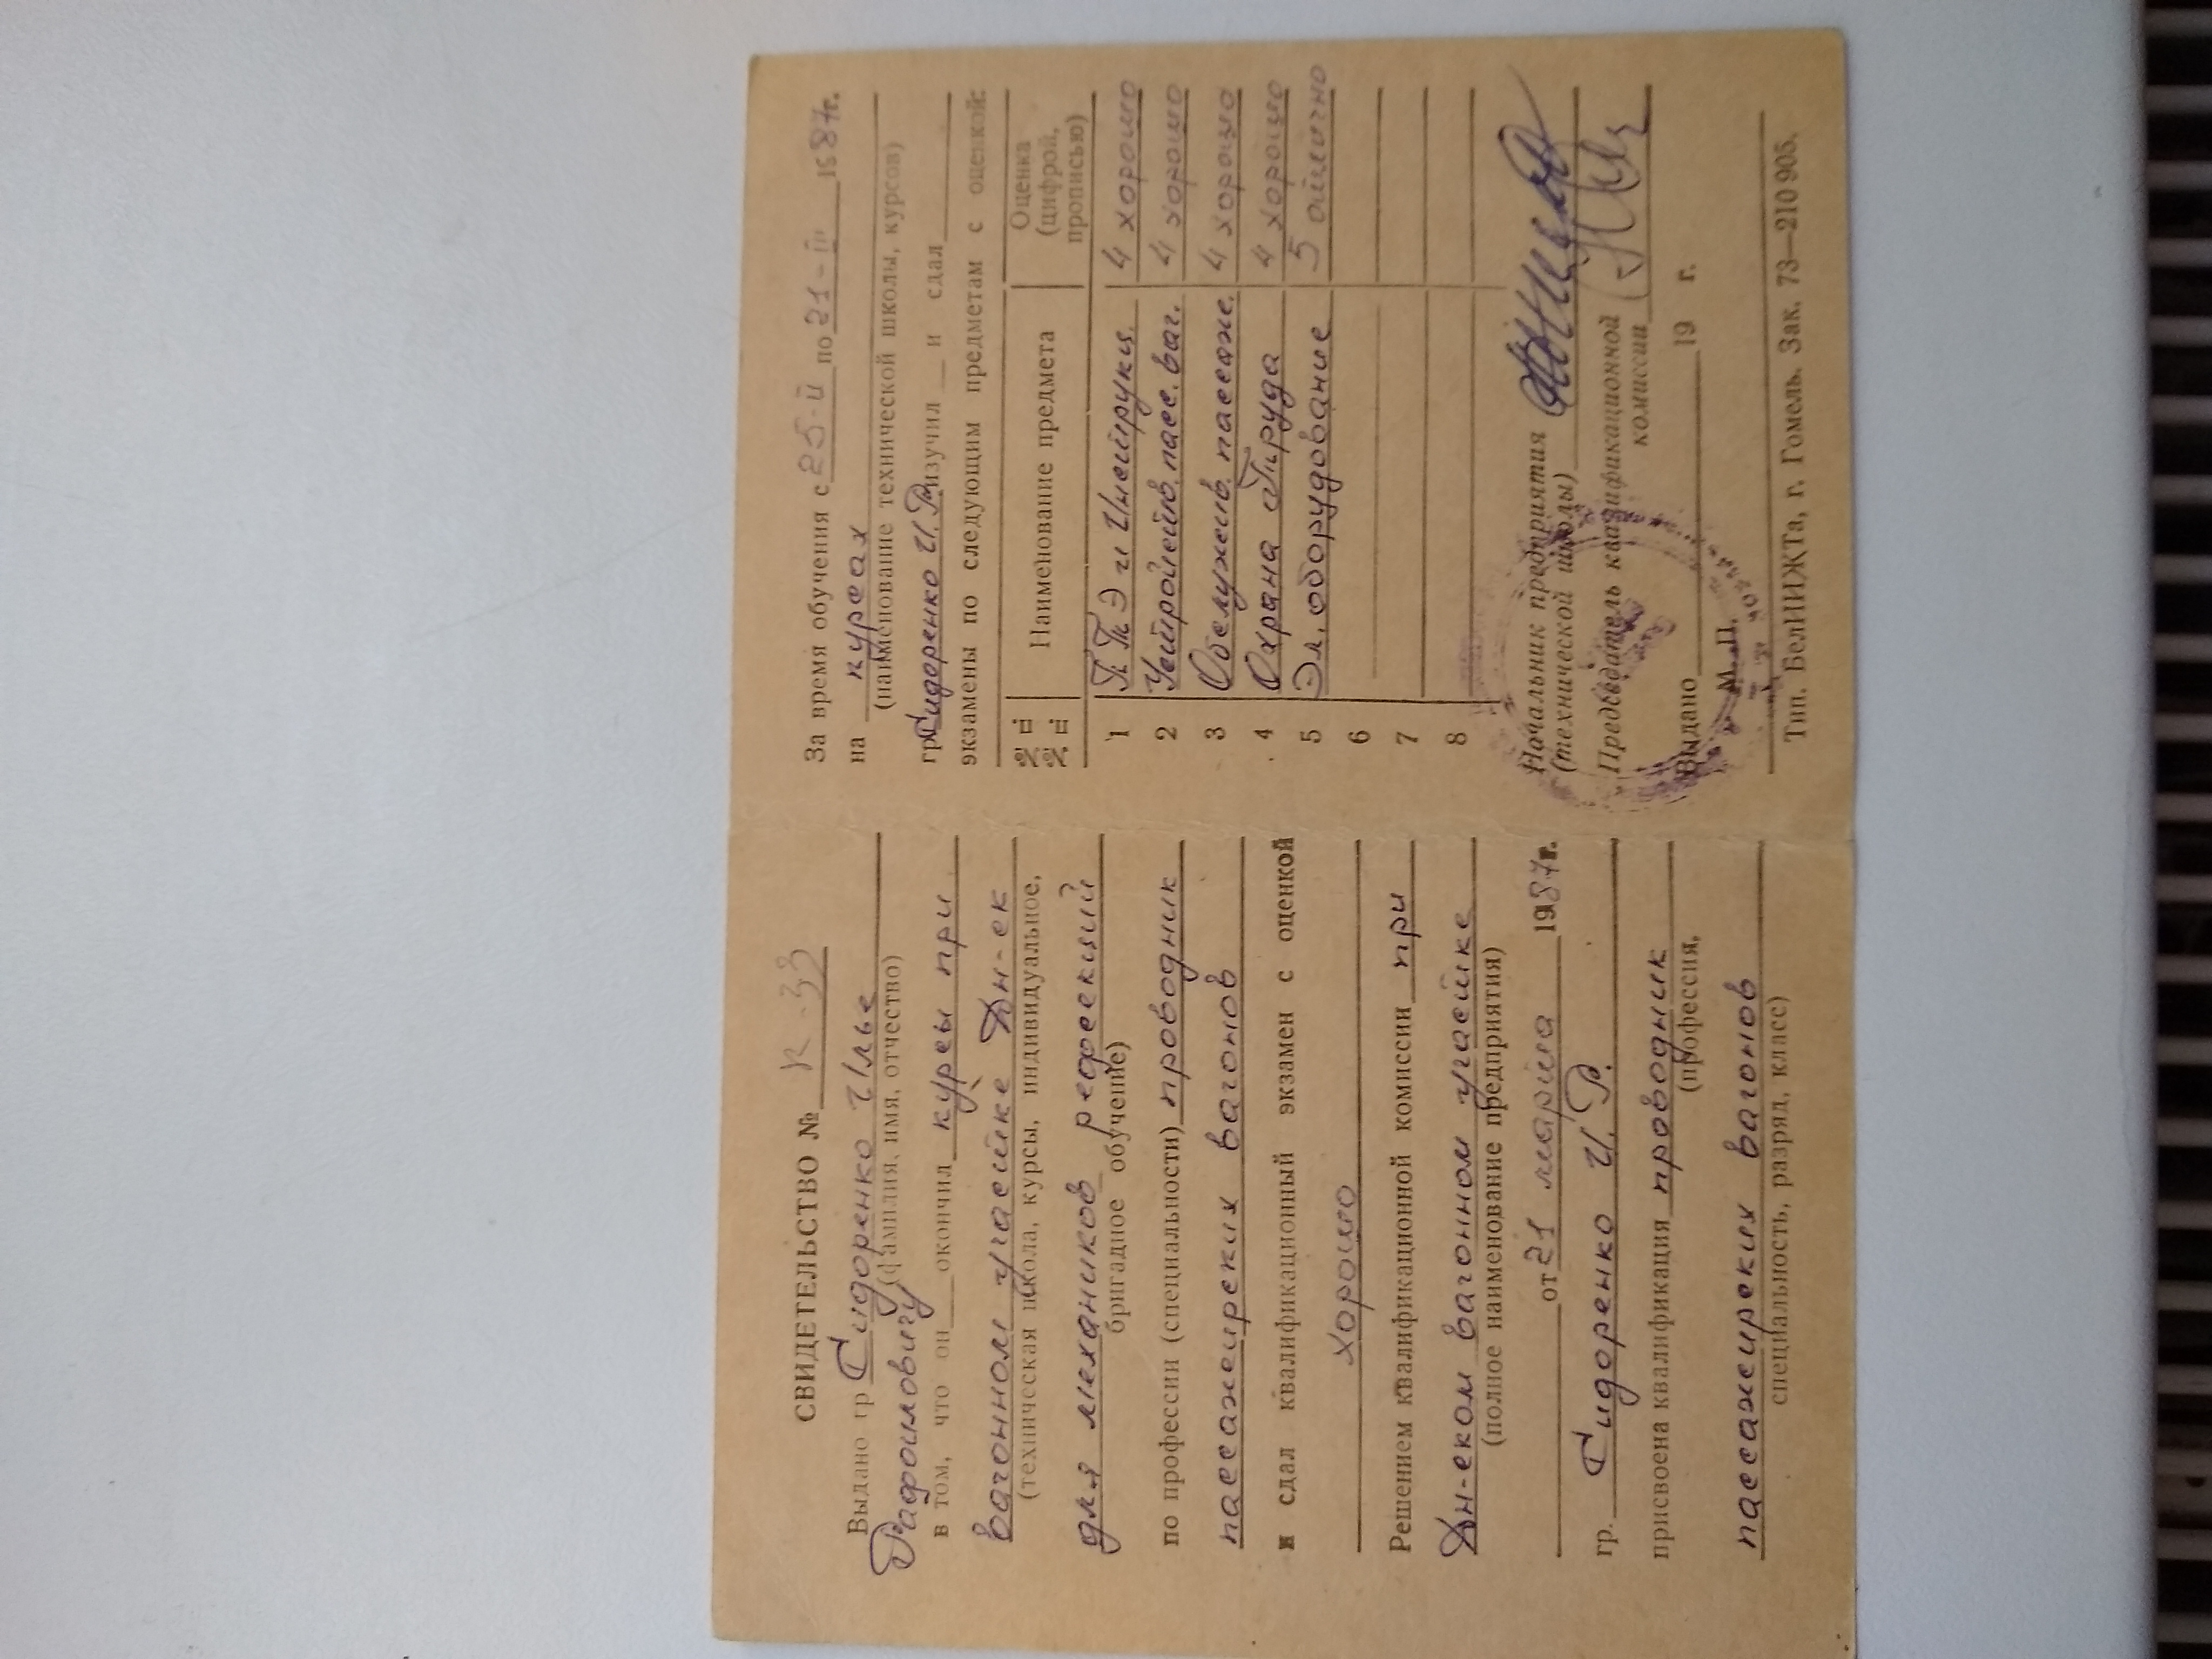 СВИДЕТЕЛЬСТВО № К-33
Выдано гр Сидоренко Илье
(фамилия, имя, отчество)
Рафоиловичу
в том, что он окончил курсы при
вагонном участке Дн-ск
(техническая школа, курсы, индивидуальное,
для механиков рефсекций
бригадное обучение)
по профессии (специальности) проводник
пассажирских вагонов
и сдал квалификационный экзамен с оценкой
хорошо
Решением квалификационной комиссии при
Дн-ском вагонном участке
(полное наименование предприятия)
от 21 марта 1987г.
гр. Сидоренко И.Р.
присвоена квалификация проводник
(профессия,
пассажирских вагонов
специальность, разряд, класс)
За время обучения с 25-II по 21-III 1987г.
на курсах
(наименование технической школы, курсов)
гр Сидоренко И.Р. изучил и сдал
экзамены по следующим предметам с оценкой:
№№ п. п. Наименование предмета Оценка (цифрой, прописью)
1 ПТЭ и Инструкц. 4 хорошо
2 Устройств. пасс. ваг. 4 хорошо
3 Обслужив. пассаж. 4 хорошо
4 Охрана Труда 4 хорошо
5 Эл. оборудование 5 отлично
6
7
8
Начальник предприятия
(технической школы)
Председатель квалификационной
комиссии
Выдано 19 г.
М.П.
Тип. БелИИЖТа, г. Гомель. Зак. 73—210 905.